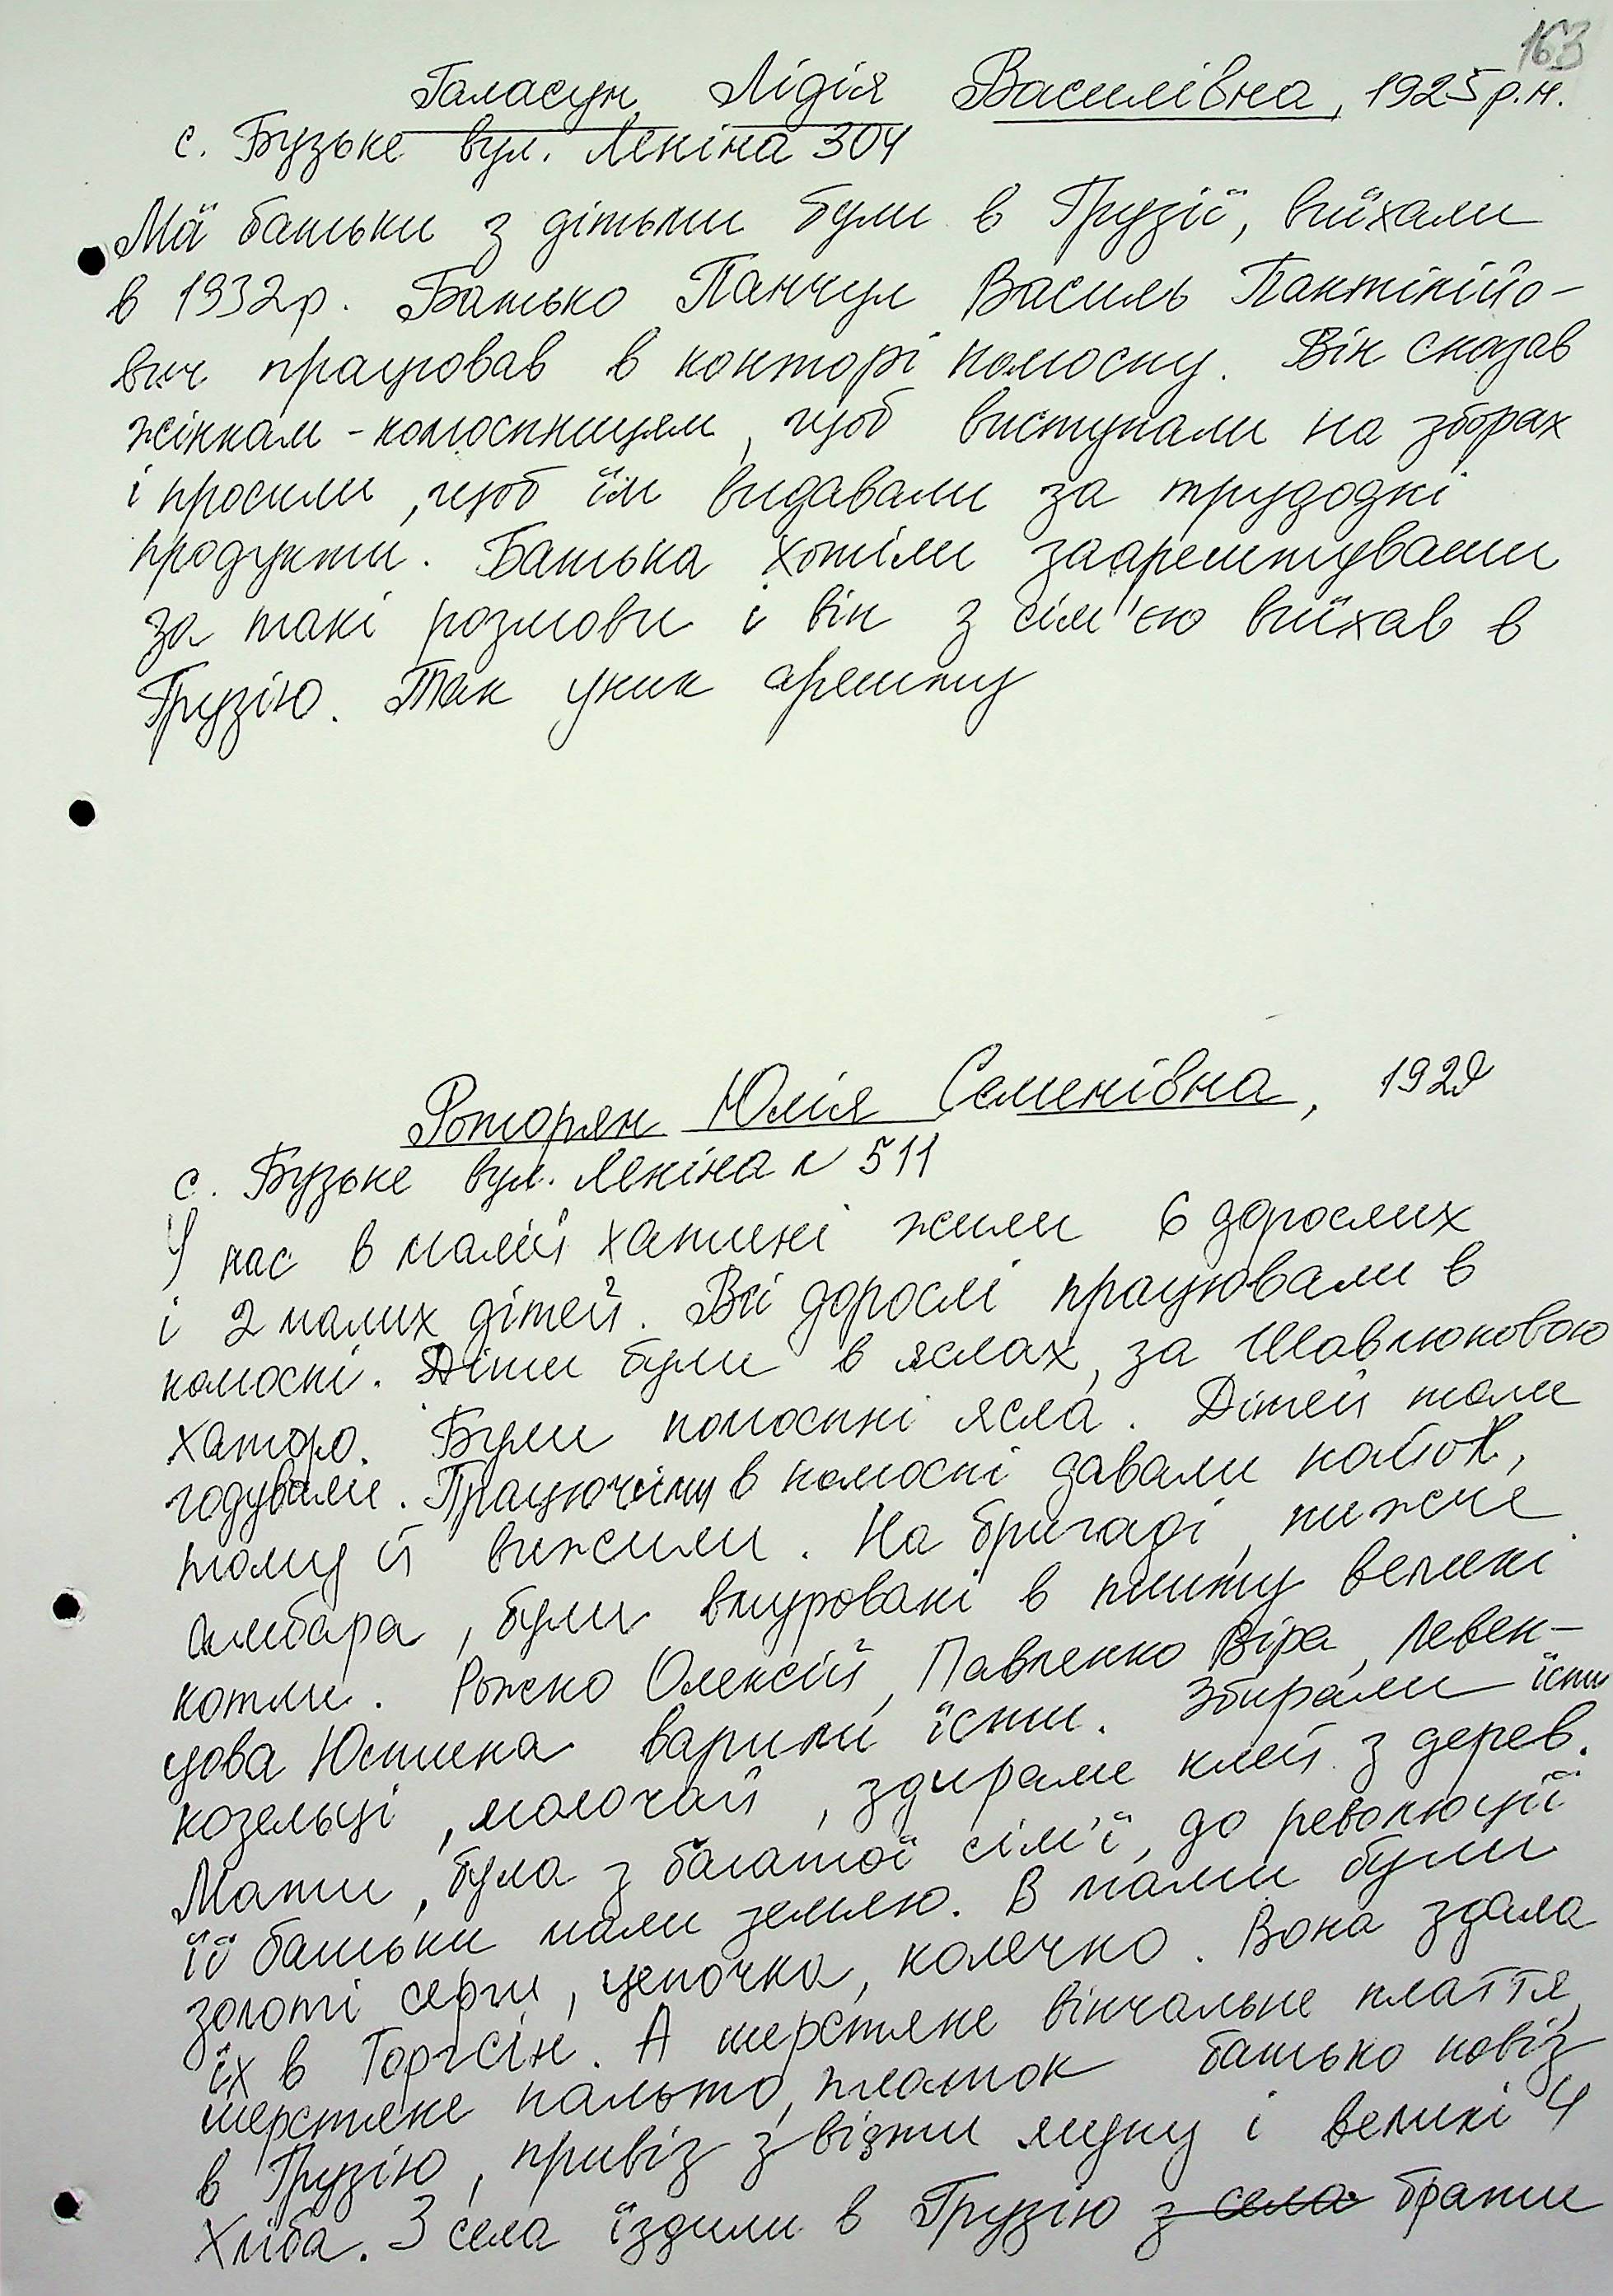 163
Галасун Лідія Василівна, 1925 р.н.
с. Бузьке вул. Леніна 304
Мої батьки з дітьми були в Грузії, виїхали
в 1932р. Батько Панчул Василь Пантілійо-
вич працював в конторі колгоспу. Він сказав
жінкам-колгоспницям, щоб виступали на зборах
і просили, щоб їм видавали за трудодні
продукти. Батька хотіли заарештувати
за такі розмови і він з сім'єю виїхав в
Грузію. Так уник арешту
Роторян Юлія Семенівна, 1929
с. Бузьке вул. Леніна № 511
У нас в малій хатині жили 6 дорослих
і 2 малих дітей. Всі дорослі працювали в
колгоспі. Діти були в яслах, за Шавлюковою
хатою. Були колгоспні ясла. Дітей там
годували. Працюючим в колгоспі давали пайок,
тому й вижили. На бригаді, нижче
амбара, були вмуровані в плиту великі
котли. Рожко Олексій, Павленко Віра, Левен-
цова Юстина варили їсти. Збирали їсти
козельці, молочай, здирали клей з дерев.
Мати, була з багатої сім'ї, до революції
її батьки мали землю. В мами були
золоті серги, цепочка, колечко. Вона здала
їх в Торгсін. А шерстяне вінчальне плаття,
шерстяне пальто, платок батько повіз
в Грузію, привіз звідти муку і великі 4
хліба. З села їздили в Грузію з села брати